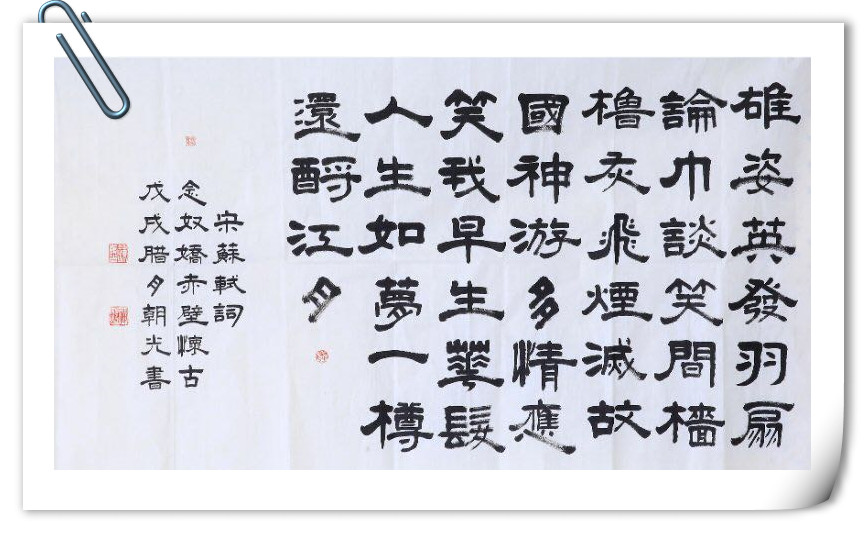 雄姿英發羽扇
論巾談笑間檣
櫓灰飛煙滅故
國神游多情應
笑我早生華髮
人生如夢一樽
還酹江月
宋蘇軾詞
念奴嬌赤壁懷古
戊戌腊月朝光書